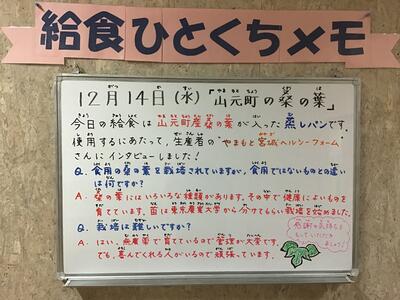 給食ひとくちメモ
12月14日(水)「山元町の桑の葉」
今日の給食は山元町産桑の葉が入った蒸しパンです。
使用するにあたって、生産者の"やまもと宮城ヘルシーファーム"
さんにインタビューしました!
Q. 食用の桑の葉を栽培されていますが、食用ではないものとの違い
は何ですか?
A. 桑の葉にはいろいろな種類があります。その中で健康によいものを
育てています。苗は東京農業大学から分けてもらい栽培を始めました。
Q. 栽培は難しいですか?
A. はい。無農薬で育てているので管理が大変です。
でも、喜んでくれる人がいるので頑張っています。
感謝の気持ちを
もっていただき
ましょう!